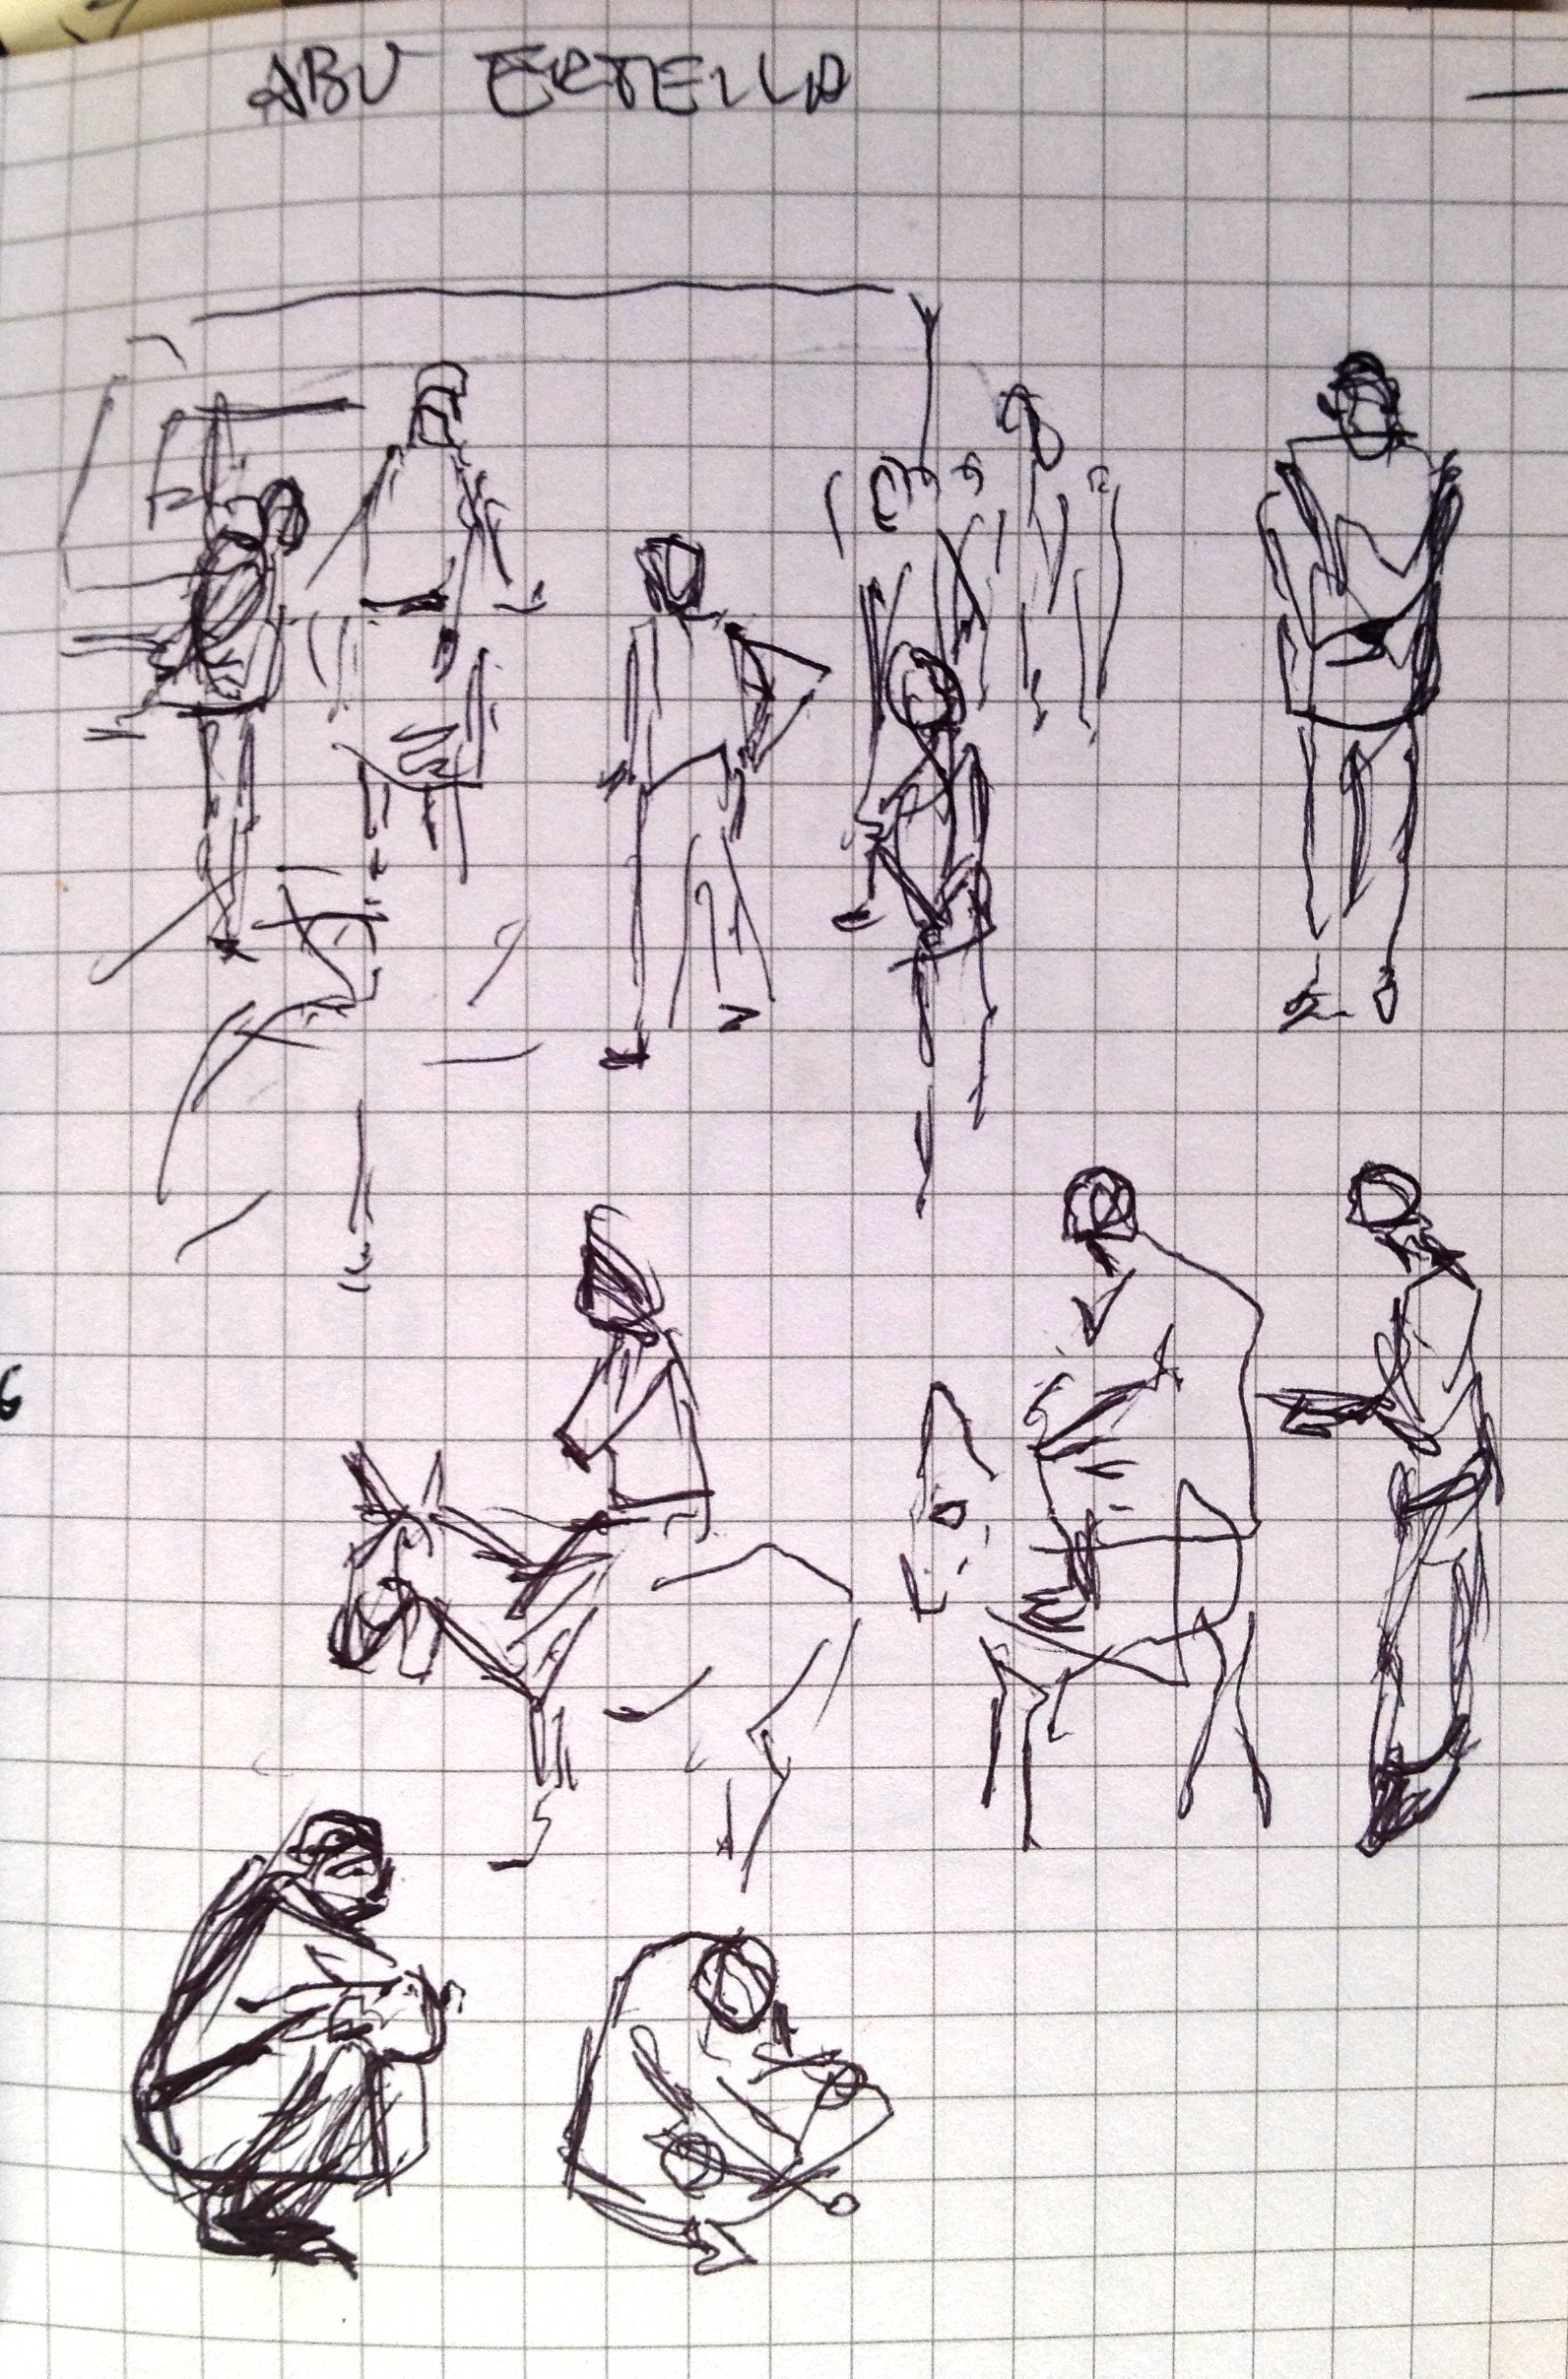 ABU ERTELLA